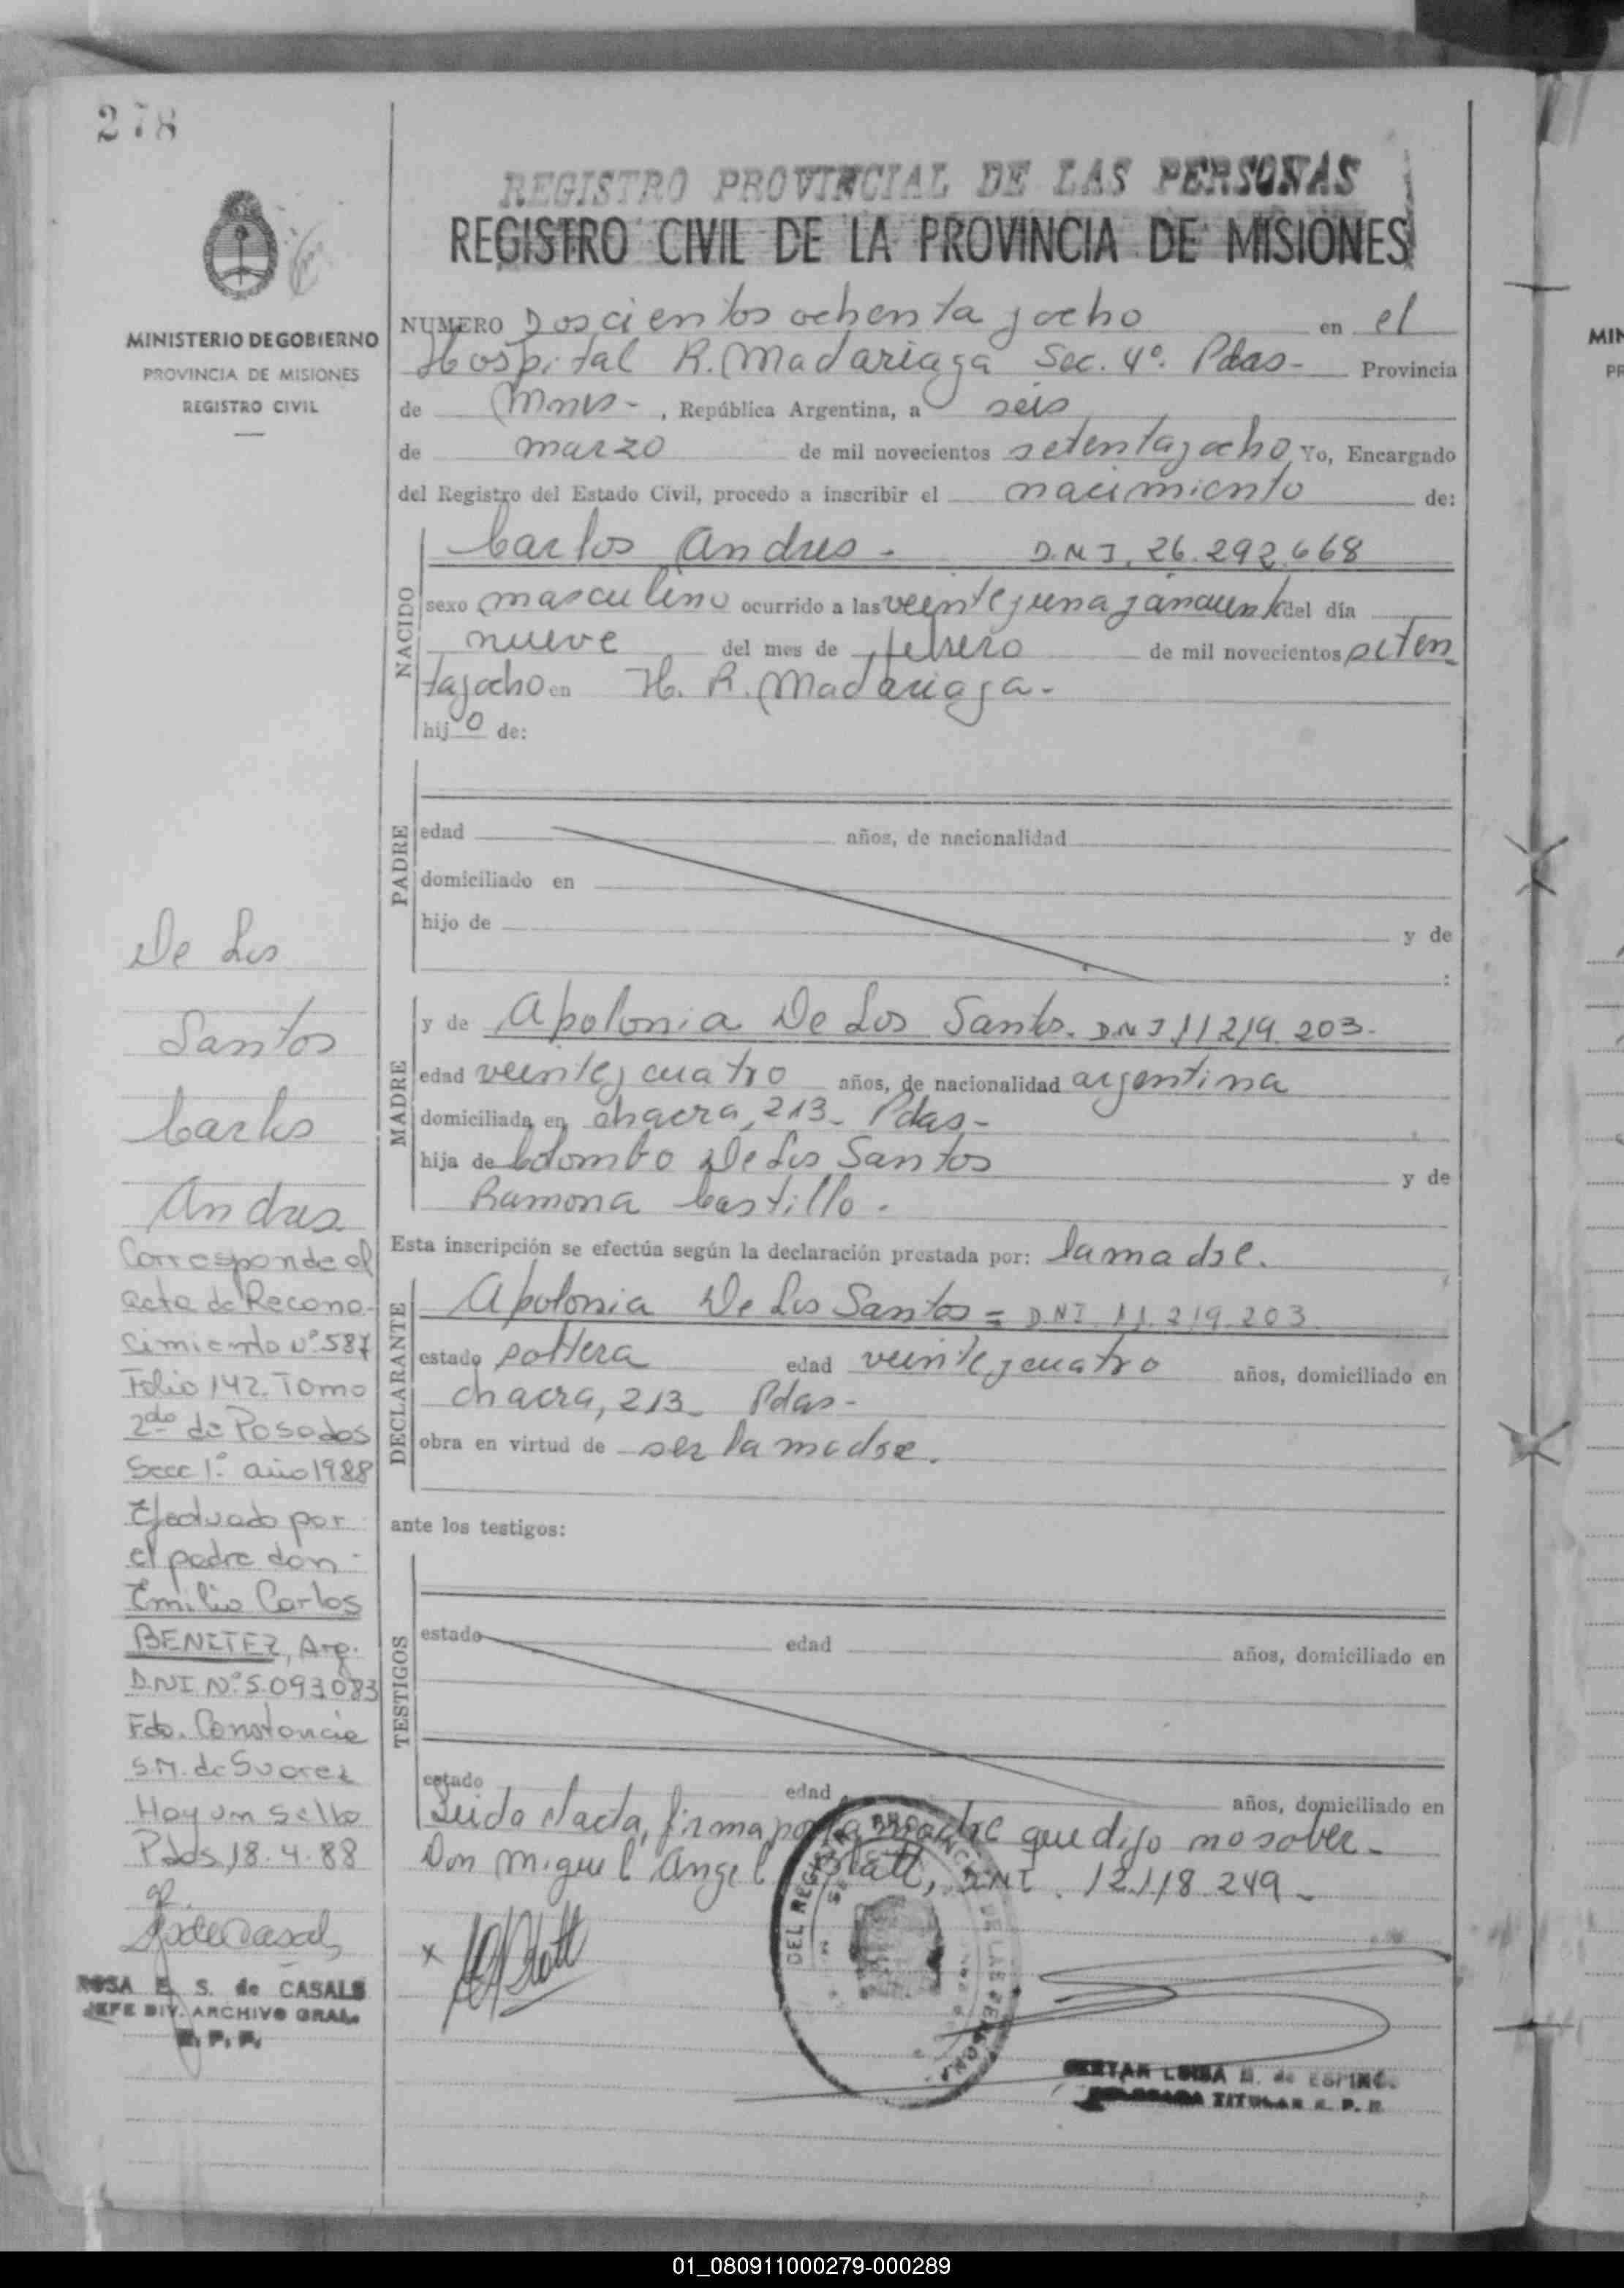 278
REGISTRO PROVINCIAL DE LAS PERSONAS
REGISTRO CIVIL DE LA PROVINCIA DE MISIONES
MINISTERIO DE GOBIERNO
PROVINCIA DE MISIONES
REGISTRO CIVIL
NUMERO Doscientos ochenta y ocho en el
Hospital R. Madariaga Sec. 4º. Pdas- Provincia
de Mnes-, República Argentina, a seis
de marzo de mil novecientos setenta y ocho Yo, Encargado
del Registro del Estado Civil, procedo a inscribir el nacimiento de:
NACIDO
Carlos Andres - D.N.I. 26.292.668
sexo masculino ocurrido a las veinte y una y cincuenta del día
nueve del mes de febrero de mil novecientos seten
ta y ocho en H. R. Madariaga-
hijo de:
PADRE
edad años, de nacionalidad
domiciliado en
hijo de y de
:
MADRE
y de Apolonia De Los Santos. DNI 11219.203-
edad veinte y cuatro años, de nacionalidad argentina
domiciliada en chacra, 213- Pdas-
hija de Colombo De Los Santos y de
Ramona Castillo.
Esta inscripción se efectúa según la declaración prestada por: la madre.
DECLARANTE
Apolonia De Los Santos = DNI 11.219.203
estado soltera edad veinte y cuatro años, domiciliado en
chacra, 213- Pdas-
obra en virtud de ser la madre.
ante los testigos:
TESTIGOS
estado edad años, domiciliado en
estado edad años, domiciliado en
Leida el acta, firma por la madre que dijo no saber-
Don Miguel Angel Blatt, DNI. 12.118.249-
x
DEL REGISTRO PROVINCIAL DE LAS PERSONAS
LUISA M. de ESPINO
TITULAR R. P. P.
De Los
Santos
Carlos
Andres
Corresponde al
acta de Recono-
cimiento Nº 587
Folio 142. Tomo
2do de Posadas
Secc 1º año 1988
Efectuado por
el padre don-
Emilio Carlos
BENITEZ, Arg.
DNI Nº 5.093.083
Fdo. Constancia
S.M. de Suarez
Hay un sello
Pdas, 18.4.88
ROSA E. S. de CASALS
JEFE DIV. ARCHIVO GRAL.
R. P. P.
MIN
PR
01_080911000279-000289